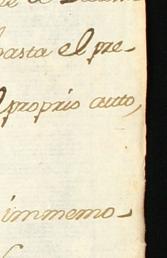 basta el pre-
proprio auto,
immemo-